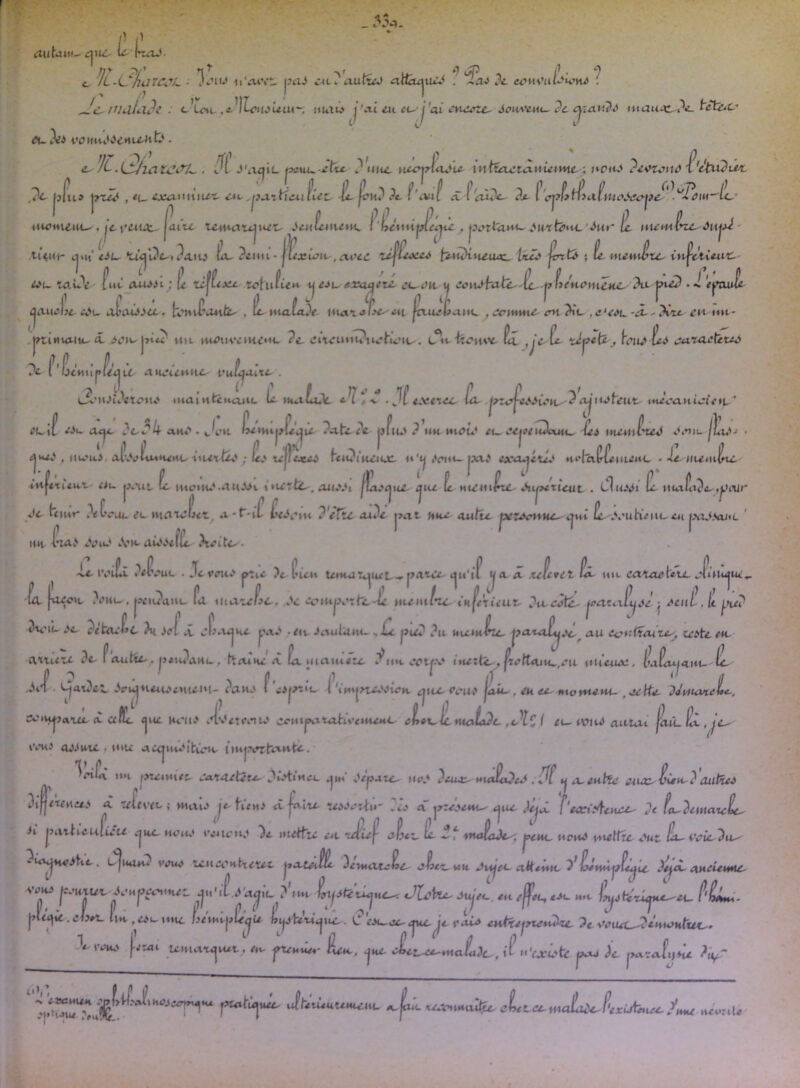 _ 339_
autant que le bras.
M. Charcot : Vous n'avez pas eu d'autres attaques ? Pas de convulsions ?
Le malade : Non, Monsieur, mais j'ai eu et j'ai encore souvent de grands maux de tête
et des vomissements.
M. Charcot. Il s'agit peut-être d'une néoplasie intracrânienne ; nous devrons l'étudier
de plus près, et examiner en particulier le fond de l'œil à l'aide de l'ophthalmoscope(1). Pour le
moment, je veux faire remarquer seulement l'hémiplégie, portant surtout sur le membre supé-
rieur qui est rigide, dans la demi-flexion, avec réflexes tendineux très forts ; le membre inférieur
est raide lui aussi ; le réflexe rotulien y est exagéré et on y constate le phénomène du pied. L'épaule
gauche est abaissée, tombante, le malade marche en fauchant, comme on dit, c'est-à-dire en im-
primant à son pied un mouvement de circumduction. On trouve là, je le répète, tous les caractères
de l'hémiplégie ancienne vulgaire.
Considérons maintenant le malade N° 2. Il exerce la profession d'ajusteur mécanicien
et il est âgé de 34 ans. Son hémiplégie date de plus d'un mois et cependant les membres sont flas-
ques, mous, absolument inertes ; les réflexes tendineux n'y sont pas exagérés notablement. Le membre
inférieur est pour le moins aussi inerte, aussi flasque que le membre supérieur. Aussi le malade, pour
se tenir debout et marcher, a-t-il besoin d'être aidé par une autre personne qui le soutient en passant
un bras sous son aisselle droite.
Le voilà debout. Je vous prie de bien remarquer, parce qu'il y a à relever là un caractère clinique,
la façon dont, pendant la marche, se comporte le membre inférieur du côté paralysé ; seul, le pied
droit se détache du sol à chaque pas en sautant. Le pied du membre paralysé, au contraire, reste en
arrière de l'autre, pendant, traîné à la manière d'un corps inerte, frottant, ou mieux, balayant le
sol. Gardez soigneusement dans l'esprit l'impression que vous fait, en ce moment, cette démarche,
comparée à celle que nous observerons comparativement chez le malade N° 1 et vous aurez fait là, je
vous assure, une acquisition importante.
Voilà un premier caractère distinct qui sépare nos deux malades. Il y a entre eux bien d'autres
différences à relever ; mais je tiens à faire ressortir dès à présent que déjà l'existence de la démarche
si particulière que nous venons de mettre en relief chez le 2e malade, peut nous mettre sur la voie du
diagnostic. Quand vous rencontrerez pareille démarche chez un sujet atteint d'hémiplégie déjà ancienne
vous pourrez soupçonner qu'il s'agit d'un hystérique. Notre sujet, en effet, est un hystérique et l'hémi-
plégie, chez lui, est une hémiplégie hystérique. C'est ce que je vais entreprendre de vous démontrer.
Je vous ferai remarquer, en premier lieu, que chez ce malade, il n'existe pas de paralysie du
(1) L'examen ophthalmoscopique pratiqué ultérieurement a fait reconnaître chez ce malade l'existence d'une névrite
optique double.